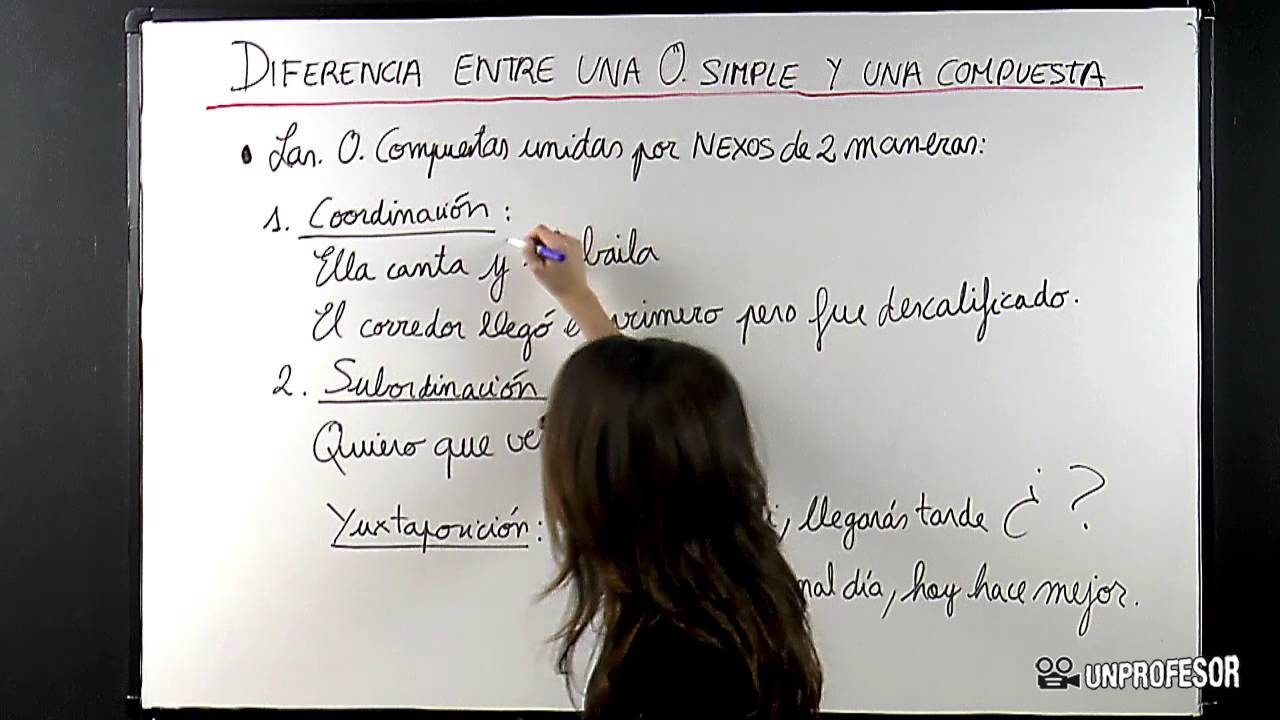 DIFERENCIA ENTRE UNA O. SIMPLE Y UNA COMPUESTA
• Las. O. Compuestas unidas por NEXOS de 2 maneras:
1. Coordinación:
Ella canta y baila
El corredor llegó primero pero fue descalificado.
2. Subordinación
Quiero que
Yuxtaposición: , llegarás tarde ¿?
mal día, hoy hace mejor.
UNPROFESOR